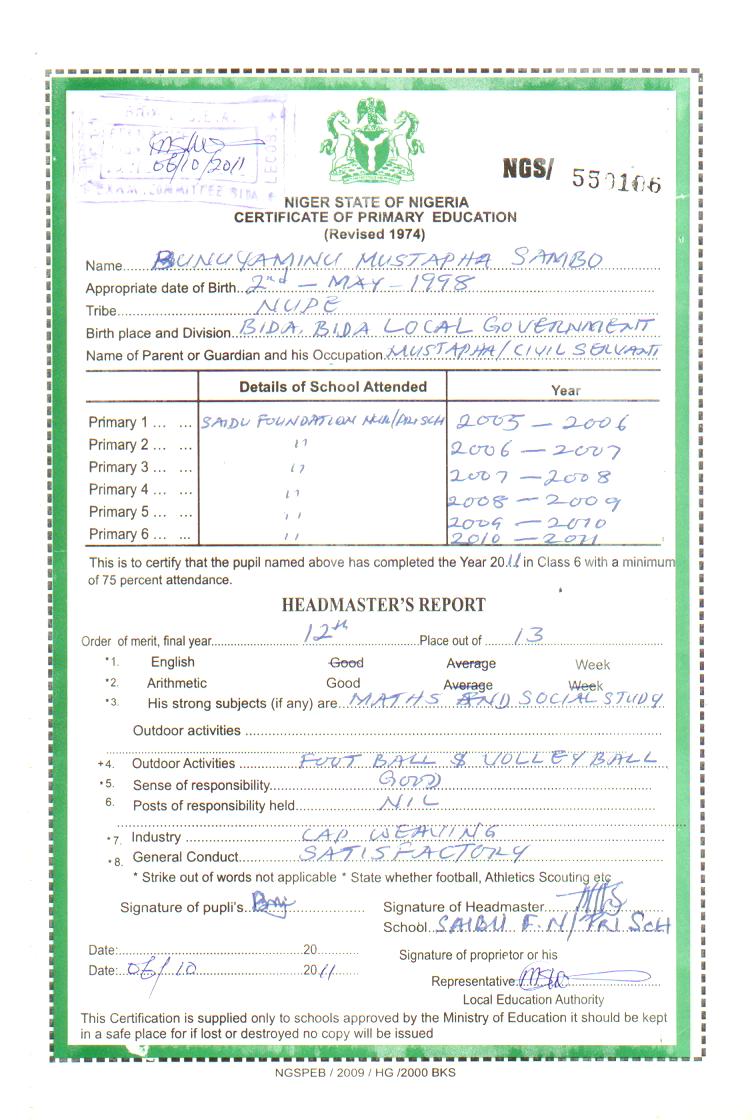 L.G.E.A.
06/10/2011
EXAM. COMMITTEE BIDA
NGS/ 550106
NIGER STATE OF NIGERIA
CERTIFICATE OF PRIMARY EDUCATION
(Revised 1974)
Name BUNUYAMINU MUSTAPHA SAMBO
Appropriate date of Birth 2nd - MAY - 1998
Tribe NUPE
Birth place and Division BIDA. BIDA LOCAL GOVERNMENT
Name of Parent or Guardian and his Occupation MUSTAPHA/CIVIL SERVANT
Details of School Attended Year
Primary 1 ... ... SAIDU FOUNDATION NUR/PRI SCH 2005 - 2006
Primary 2 ... ... " 2006 - 2007
Primary 3 ... ... " 2007 - 2008
Primary 4 ... ... " 2008 - 2009
Primary 5 ... ... " 2009 - 2010
Primary 6 ... ... " 2010 - 2011
This is to certify that the pupil named above has completed the Year 2011 in Class 6 with a minimum
of 75 percent attendance.
HEADMASTER'S REPORT
Order of merit, final year 12th Place out of 13
*1. English Good Average Week
*2. Arithmetic Good Average Week
*3. His strong subjects (if any) are MATHS AND SOCIAL STUDY
Outdoor activities
+4. Outdoor Activities FOOT BALL & VOLLEY BALL
*5. Sense of responsibility GOOD
6. Posts of responsibility held NIL
*7. Industry CAP WEAVING
*8. General Conduct SATISFACTORY
* Strike out of words not applicable * State whether football, Athletics Scouting etc
Signature of pupil's
Signature of Headmaster
School SAIDU F. N/PRI SCH
Date: 20
Signature of proprietor or his
Date: 06/10 2011
Representative
Local Education Authority
This Certification is supplied only to schools approved by the Ministry of Education it should be kept
in a safe place for if lost or destroyed no copy will be issued
NGSPEB / 2009 / HG /2000 BKS